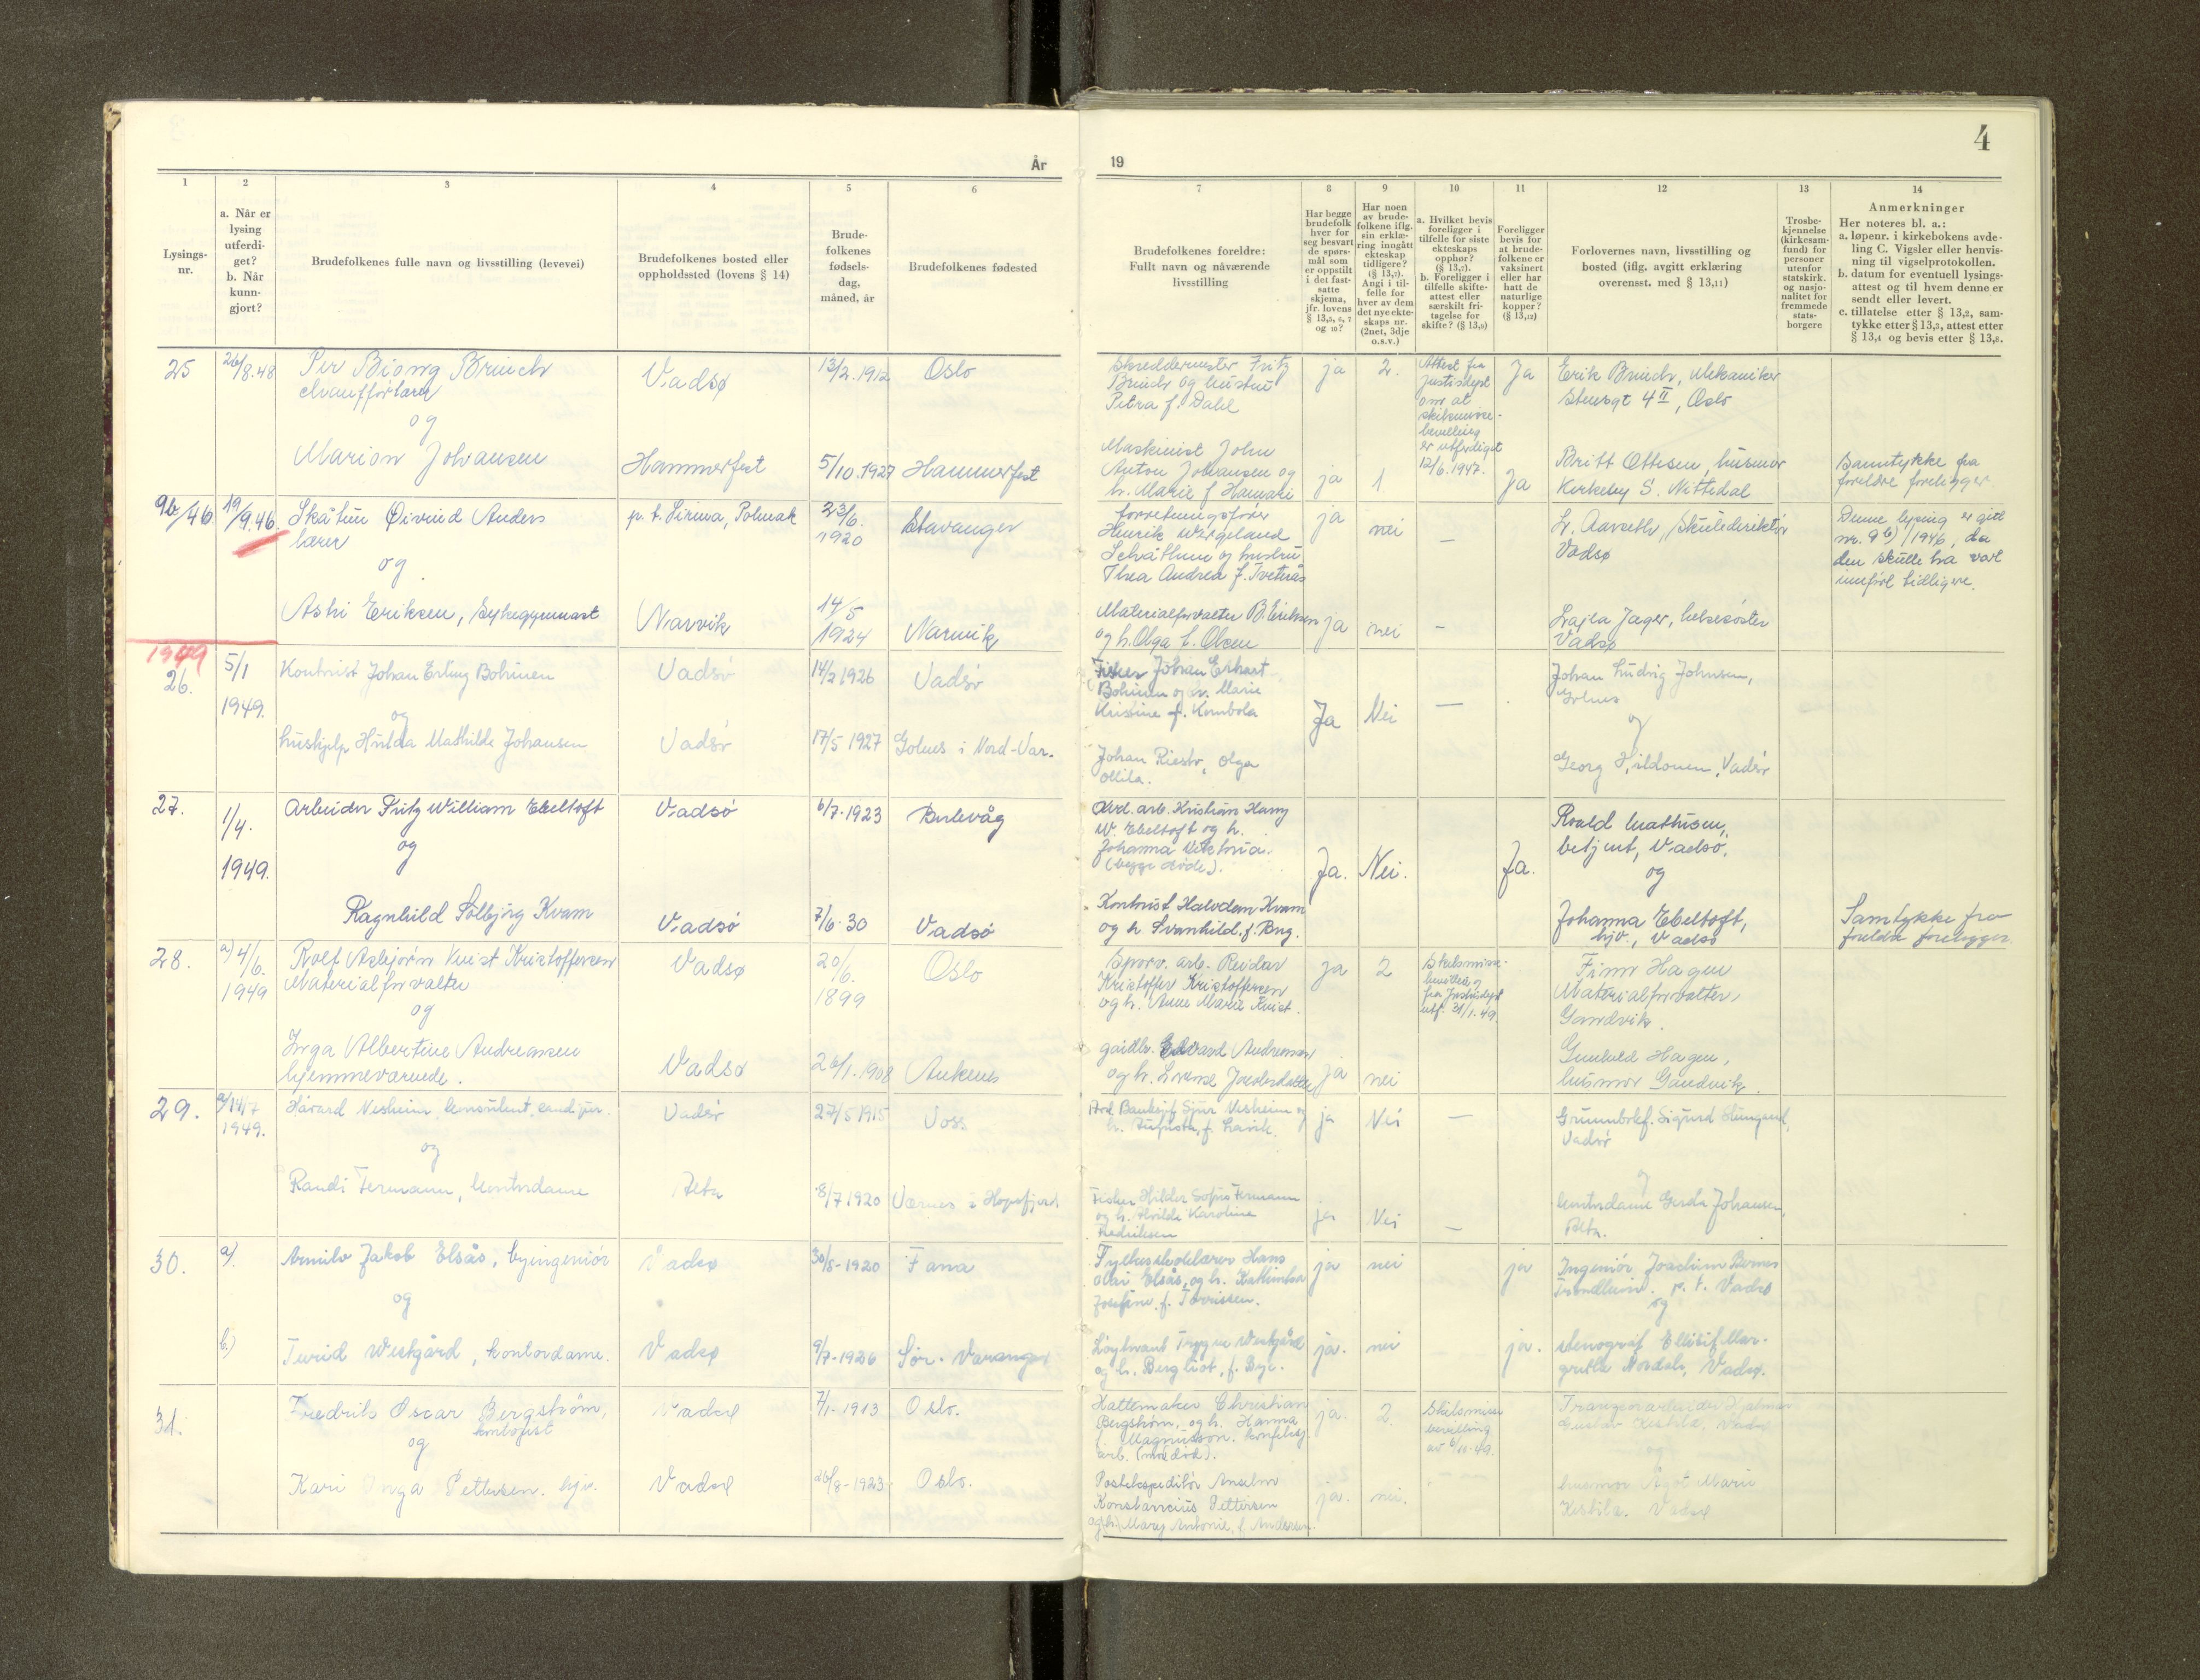 År
19
4
1
2
3
4
5
6
7
8
9
10
11
12
13
14
Lysings-
nr.
a. Når er
lysing
utferdi-
get?
b. Når
kunn-
gjort?
Brudefolkenes fulle navn og livsstilling (levevei)
Brudefolkenes bosted eller
oppholdssted (lovens § 14)
Brude-
folkenes
fødsels-
dag,
måned, år
Brudefolkenes fødested
Brudefolkenes foreldre:
Fullt navn og nåværende
livsstilling
Har begge
brudefolk
hver for
seg besvart
de spørs-
mål som
er oppstilt
i det fast-
satte
skjema,
jfr. lovens
§ 13,5, 6, 7
og 10?
Har noen
av brude-
folkene iflg.
sin erklæ-
ring inngått
ekteskap
tidligere?
(§ 13,7).
Angi i til-
felle for
hver av dem
det nye ekte-
skaps nr.
(2net, 3dje
o.s.v.)
a. Hvilket bevis
foreligger i
tilfelle for siste
ekteskaps
opphør?
(§ 13,7).
b. Foreligger i
tilfelle skifte-
attest eller
særskilt fri-
tagelse for
skifte? (§ 13,9)
Foreligger
bevis for
at brude-
folkene er
vaksinert
eller har
hatt de
naturlige
kopper?
(§ 13,12)
Forlovernes navn, livsstilling og
bosted (iflg. avgitt erklæring
overensst. med § 13,11)
Trosbe-
kjennelse
(kirkesam-
fund) for
personer
utenfor
statskirk.
og nasjo-
nalitet for
fremmede
stats-
borgere
Anmerkninger
Her noteres bl. a.:
a. løpenr. i kirkebokens avde-
ling C. Vigsler eller henvis-
ning til vigselprotokollen.
b. datum for eventuell lysings-
attest og til hvem denne er
sendt eller levert.
c. tillatelse etter § 13,2, sam-
tykke etter § 13,3, attest etter
§ 13,4 og bevis etter § 13,8.
25
26/8.48
Per Biong Bruuch
Vadsø
13/2.1912
Oslo
Skreddermester Fritz
Bruuch og hustru
Petra f. Dahl
ja
2.
Attest fra
justisdept
om at
skilsmisse-
bevilling
er utferdiget
12/6.1947.
Ja
Erik Bruuch, Mekaniker
4 II, Oslo
og
Marion Johansen
Hammerfest
5/10.1927
Hammerfest
Maskinist John
Anton Johansen og
h. Marie f. Hamari
ja
1
Ja
Britt Ottesen, husmor
Kirkeby S. Nittedal
Samtykke fra
foreldre foreligger
9b/46
19/9.46.
Skåtun Øivind Anders
lærer
p.t. Sirma, Polmak
23/6.
1920
Stavanger
Forretningsfører
Henrik Wergeland
Schåthun og hustru
Thea Andrea f. Tveterås
ja
nei
—
L. Aarseth, Skuledirektør
Vadsø
Denne lysing er gitt
nr. 9b)/1946, da
den skulle ha vært
innført tidligere.
og
Astri Eriksen, Sykegymnast
Narvik
14/5
1924
Narvik
Materialforvalter B. Eriksen
og h. Olga f. Olsen
ja
nei
—
Lajla Jager, helsesøster
Vadsø
1949
26.
5/1
1949.
Kontorist Johan Erling Bohinen
Vadsø
14/2 1926
Vadsø
Fisker Johan Erhart
Bohinen og h. Marie
Kristine f. Karnbola
Ja
Nei
—
Johan Ludvig Johnsen,
Golnes
og
hushjelp Hulda Mathilde Johansen
Vadsø
17/5 1927
Golnes i Nord-Var.
Johan Riesto, Olga
Ollila.
og
Georg Hildonen, Vadsø
27.
1/4.
1949.
Arbeider Fritz William Ebeltoft
Vadsø
6/7-1923
Bulevåg
Avd. arb. Kristian Harry
W. Ebeltoft og h.
Johanna Viktoria.
(begge døde).
Ja.
Nei.
Ja.
Roald Mathisen,
betjent, Vadsø.
og
og
Ragnhild Solbjørg Kvam
Vadsø
7/6-30
Vadsø
Kontorist Halvdan Kvam
og h Svanhild, f. Bng.
Johanna Ebeltoft,
hjv., Vadsø
Samtykke fra
foreldre foreligger
28.
a) 4/6.
1949
Rolf Asbjørn Kvist Kristoffersen
Materialforvalter
Vadsø
20/6.
1899
Oslo
Sporv. arb. Reidar
Kristoffer Kristoffersen
og h. Anne Marie Kvist.
ja
2
Skilsmisse-
bevilling
fra Justisdept
utf. 21/1.49.
Finn Hagen
Materialforvalter,
Gandvik.
og
Inga Albertine Andreassen
hjemmeværende.
Vadsø
26/1.1908
Aukenes
gårdbr. Edvard Andreassen
og h. Lovise
ja
nei
Gunvald Hagen,
husmor Gandvik.
29.
a) 14/7
1949.
Håvard Nesheim, konsulent, cand. jur.
Vadsø
27/5 1915
Voss
Avd. Banksjef Sjur Nesheim og
h. Augusta, f. Lavik.
ja
Nei
—
Grunnbokf. Sigurd
Vadsø
og
Randi Fermann, kontordame
Alta
8/7 1920
Værnes i Hopsfjord.
Fisker Hilder Sofus Fermann
og h. Hilda Karoline
Fredriksen
ja
Nei
—
og
kontordame Gerda Johansen,
Alta.
30.
a).
Arnulv Jakob Elsås, byingeniør
Vadsø
30/8-1920
Fana
Fylkesskolelærer Hans
Olai Elsås, og h. Kathinka
Josefine f. Torrissen.
ja
nei
ja
Ingeniør Joachim Bernes
Trondheim. p.t. Vadsø
og
og
b.)
Turid Westgård, kontordame.
Vadsø
9/7-1926
Sør-Varanger
Løytnant Trygve Westgård
og h. Bergliot, f. Bye.
ja.
nei
ja.
stenograf Ellisif Mar-
grethe Nordal, Vadsø.
31.
Fredrik Oscar Bergstrøm,
kontorist
Vadsø
7/1-1913
Oslo.
Hattemaker Christian
Bergstrøm, og h. Hanna
Magnusson. konfeksj.
arb. (mor død).
ja.
2.
Skilsmisse
bevilling
av 6/11-49.
Transportarbeider Hjalmar
Gustav Kistila, Vadsø
og
og
Kari Inga Pettersen. hjv.
Vadsø
26/8-1923
Oslo.
Postekspeditør Anselm
Konstansius Pettersen
og h. Mary Antonie, f. Andersen.
ja.
nei.
husmor Ågot Marie
Kistila. Vadsø